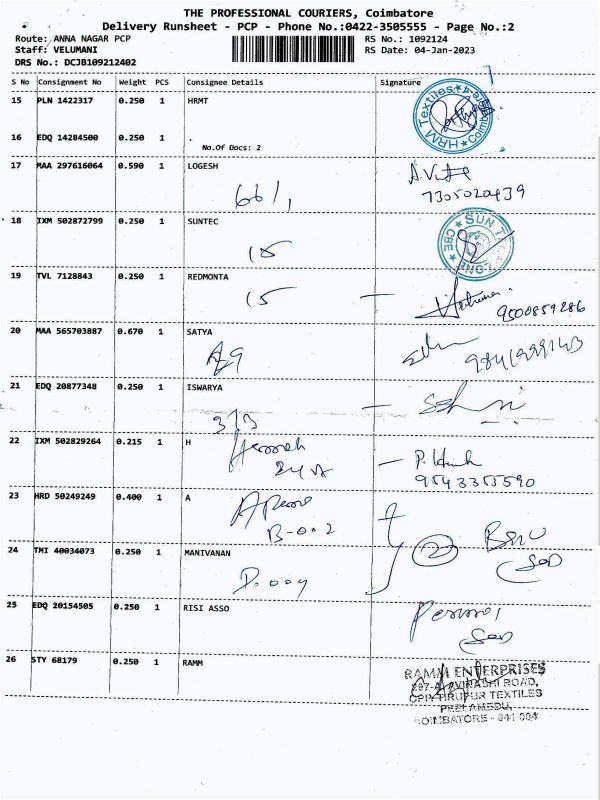 THE PROFESSIONAL COURIERS, Coimbatore
Delivery Runsheet - PCP - Phone No.:0422-3505555 - Page No.:2
Route: ANNA NAGAR PCP RS No.: 1092124
Staff: VELUMANI RS Date: 04-Jan-2023
DRS No.: DCJB109212402
S No Consignment No Weight PCS Consignee Details Signature
15 PLN 1422317 0.250 1 HRMT
HRM Textiles
16 EDQ 14284500 0.250 1 .
No.Of Docs: 2
17 MAA 297616064 0.590 1 LOGESH
66/1
7305020439
18 IXM 502872799 0.250 1 SUNTEC
15
SUN
CBE
19 TVL 7128843 0.250 1 REDMONTA
15
9500859286
20 MAA 565703887 0.670 1 SATYA
21 EDQ 20877348 0.250 1 ISWARYA
3/3
22 IXM 502829264 0.215 1 H
9543355590
23 HRD 50249249 0.400 1 A
B-002
24 TMI 40034073 0.250 1 MANIVANAN
D.004
25 EDQ 20154505 0.250 1 RISI ASSO
26 STY 68179 0.250 1 RAMM
RAMM ENTERPRISES
AVINASHI ROAD,
OPP. TIRUPUR TEXTILES
PEELAMEDU,
COIMBATORE - 641 004